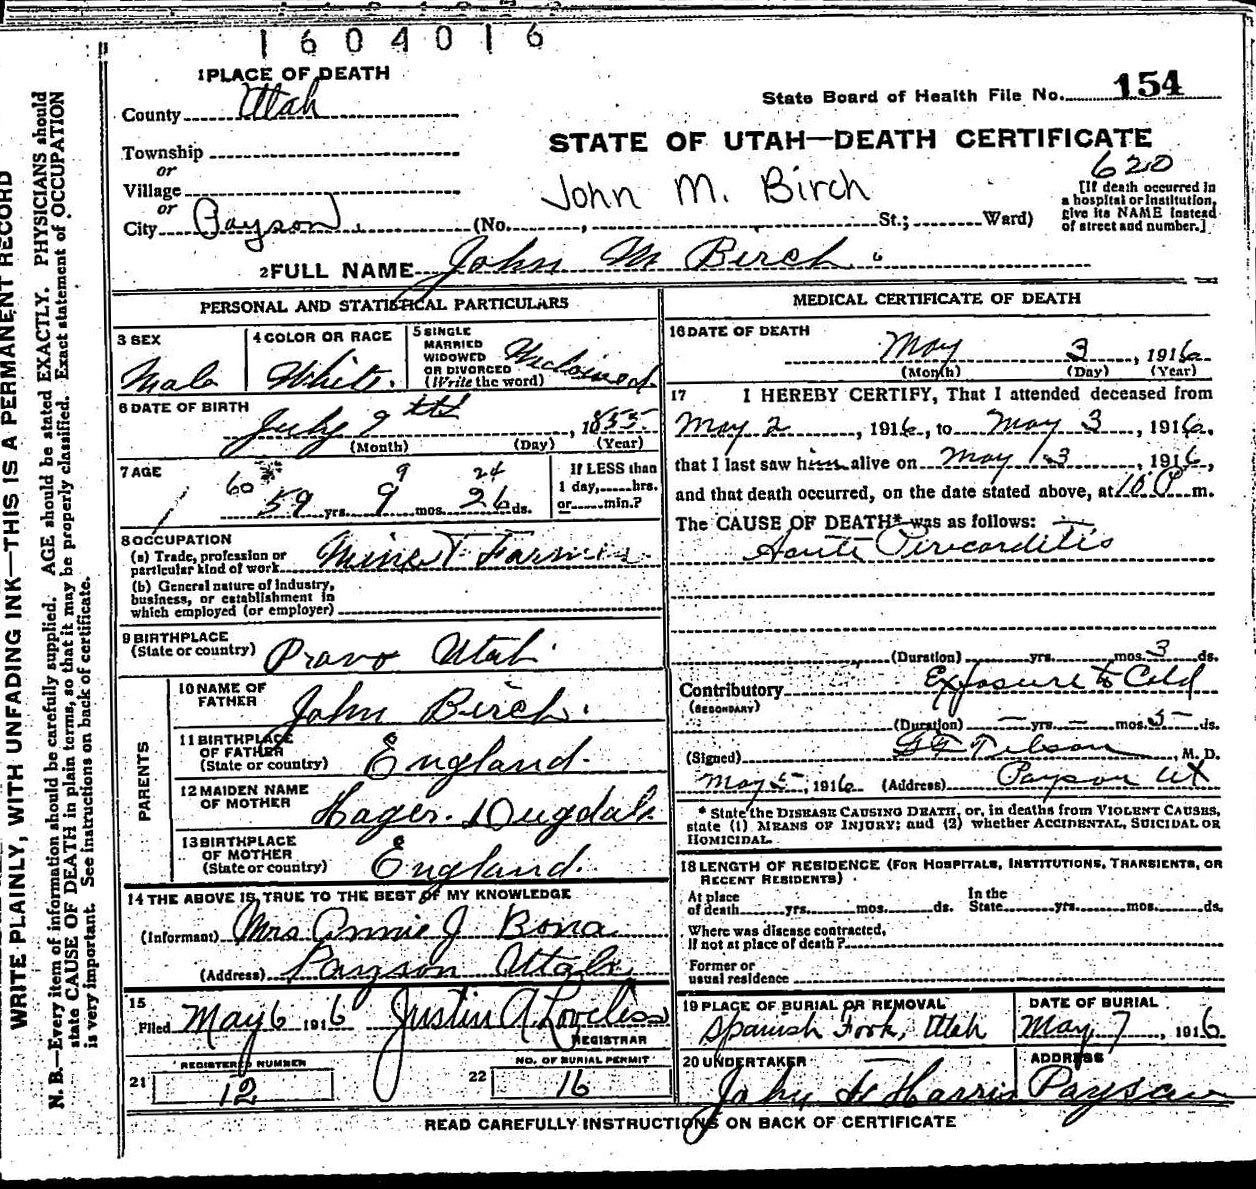 1604016
1 PLACE OF DEATH
County Utah
State Board of Health File No. 154
STATE OF UTAH—DEATH CERTIFICATE
Township
or
Village
or
City Payson
John M. Birch
620
(No. , St.; Ward)
[If death occurred in
a hospital or institution,
give its NAME instead
of street and number.]
2 FULL NAME John M Birch
PERSONAL AND STATISTICAL PARTICULARS
3 SEX
Male
4 COLOR OR RACE
White.
5 SINGLE
MARRIED
WIDOWED
OR DIVORCED
(Write the word)
Widowed
6 DATE OF BIRTH
July 9th, 1855
(Month) (Day) (Year)
7 AGE
60 9 24
59 yrs. 9 mos. 26 ds.
If LESS than
1 day, hrs.
or min.?
8 OCCUPATION
(a) Trade, profession or
particular kind of work Miner & Farmer
(b) General nature of industry,
business, or establishment in
which employed (or employer)
9 BIRTHPLACE
(State or country) Provo Utah
PARENTS
10 NAME OF
FATHER John Birch.
11 BIRTHPLACE
OF FATHER
(State or country) England.
12 MAIDEN NAME
OF MOTHER Hager. Dugdale
13 BIRTHPLACE
OF MOTHER
(State or country) England.
14 THE ABOVE IS TRUE TO THE BEST OF MY KNOWLEDGE
(Informant) Mrs Annie J Bona
(Address) Payson Utah
15
Filed May 6 1916 Justin A Loveless
REGISTRAR
REGISTERED NUMBER
21 12
NO. OF BURIAL PERMIT
22 16
MEDICAL CERTIFICATE OF DEATH
16 DATE OF DEATH
May 3, 1916
(Month) (Day) (Year)
17 I HEREBY CERTIFY, That I attended deceased from
May 2, 1916, to May 3, 1916,
that I last saw him alive on May 3, 1916,
and that death occurred, on the date stated above, at 10 P m.
The CAUSE OF DEATH* was as follows:
Acute Pericarditis
(Duration) yrs. mos. 3 ds.
Contributory Exposure to Cold
(SECONDARY)
(Duration) — yrs. — mos. 5 ds.
(Signed) Tilson, M. D.
May 5, 1916 (Address) Payson Ut
* State the DISEASE CAUSING DEATH, or, in deaths from VIOLENT CAUSES,
state (1) MEANS OF INJURY; and (2) whether ACCIDENTAL, SUICIDAL OR
HOMICIDAL.
18 LENGTH OF RESIDENCE (FOR HOSPITALS, INSTITUTIONS, TRANSIENTS, OR
RECENT RESIDENTS)
At place
of death yrs. mos. ds.
In the
State yrs. mos. ds.
Where was disease contracted,
if not at place of death?
Former or
usual residence
19 PLACE OF BURIAL OR REMOVAL
Spanish Fork, Utah
DATE OF BURIAL
May 7, 1916
20 UNDERTAKER
John F Harris
ADDRESS
Payson
READ CAREFULLY INSTRUCTIONS ON BACK OF CERTIFICATE
WRITE PLAINLY, WITH UNFADING INK—THIS IS A PERMANENT RECORD
N. B.—Every item of information should be carefully supplied. AGE should be stated EXACTLY. PHYSICIANS should
state CAUSE OF DEATH in plain terms, so that it may be properly classified. Exact statement of OCCUPATION
is very important. See instructions on back of certificate.